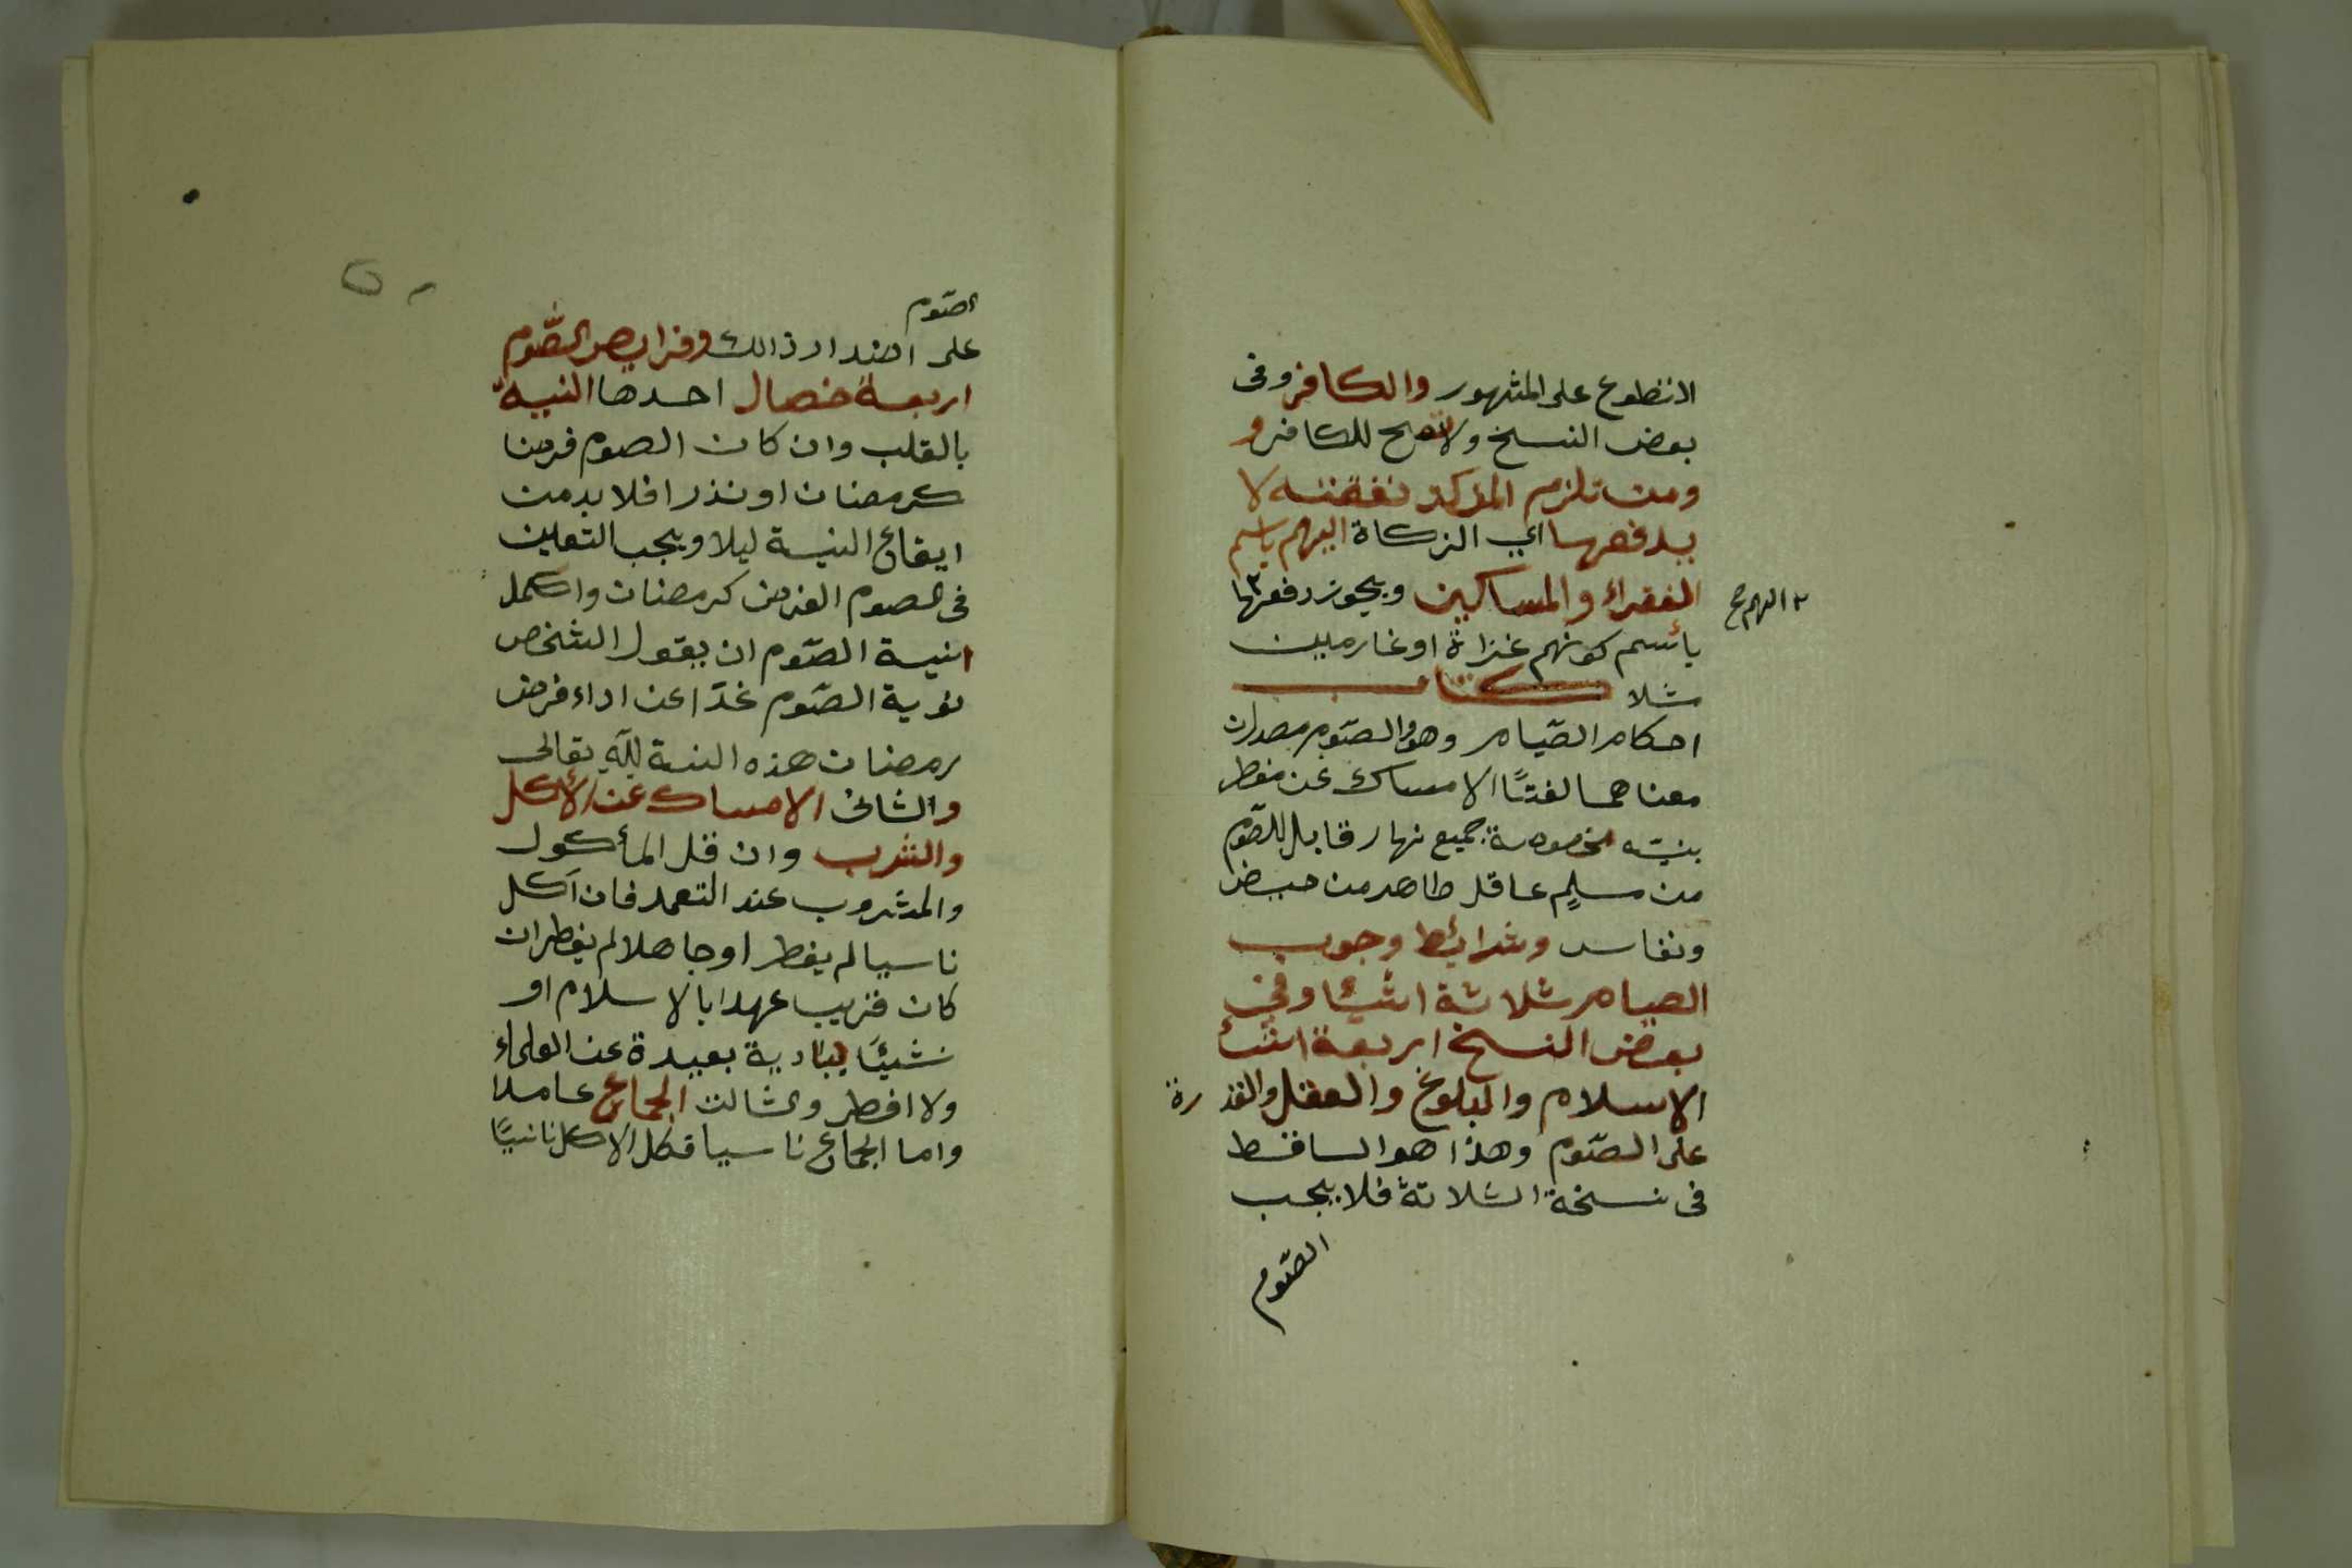 الانظوع على المشهور والكافر وفى
بعض النسخ ولا تصح للكافر و
ومن تلزم المزكى نفقته لا
يدفعها اي الزكاة اليهم باسم
الفقراء والمساكين ويجوز دفعها
٢ اليهم صح
بأسم كونهم غزاة او غارمين
مثلا كتاب
احكام الصّيام وهو والصّوم مصدران
معناهما لغتًا الامساك عن مفطر
بنيّه مخصوصة جميع نهار قابل للصّوم
من مسلمٍ عاقل طاهر من حيض
ونفاس وشرائط وجوب
الصيام ثلاثة اشيئا وفي
بعض النسخ اربعة اشئ
الاسلام والبلوغ والعقل والقدرة
على الصّوم وهذا هو الساقط
فى نسخة الثلاثة فلا يجب
الصّوم
الصّوم
على اضداد ذالك وفرايض الصّوم
اربعة خصال احدها النية
بالقلب وان كان الصوم فرضا
كرمضان او نذرا فلا بد من
ايقاع النية ليلا ويجب التعيين
فى الصوم الفرض كرمضان واكمل
نية الصّوم ان يقول الشخص
نوية الصّوم غدّا عن اداء فرض
رمضان هذه السنة للّه تعالى
والثانى الامساك عن الأكل
والشرب وان قل المأكول
والمشروب عند التعمد فان اكل
ناسيا لم يفطر او جاهلا لم يفطر ان
كان قريب عهدا بالاسلام او
نشيئًا ببادية بعيدة عن العلماء
ولا افطر والثالث الجماع عامدا
واما الجماع ناسيا فكل الاكل ناسيًا